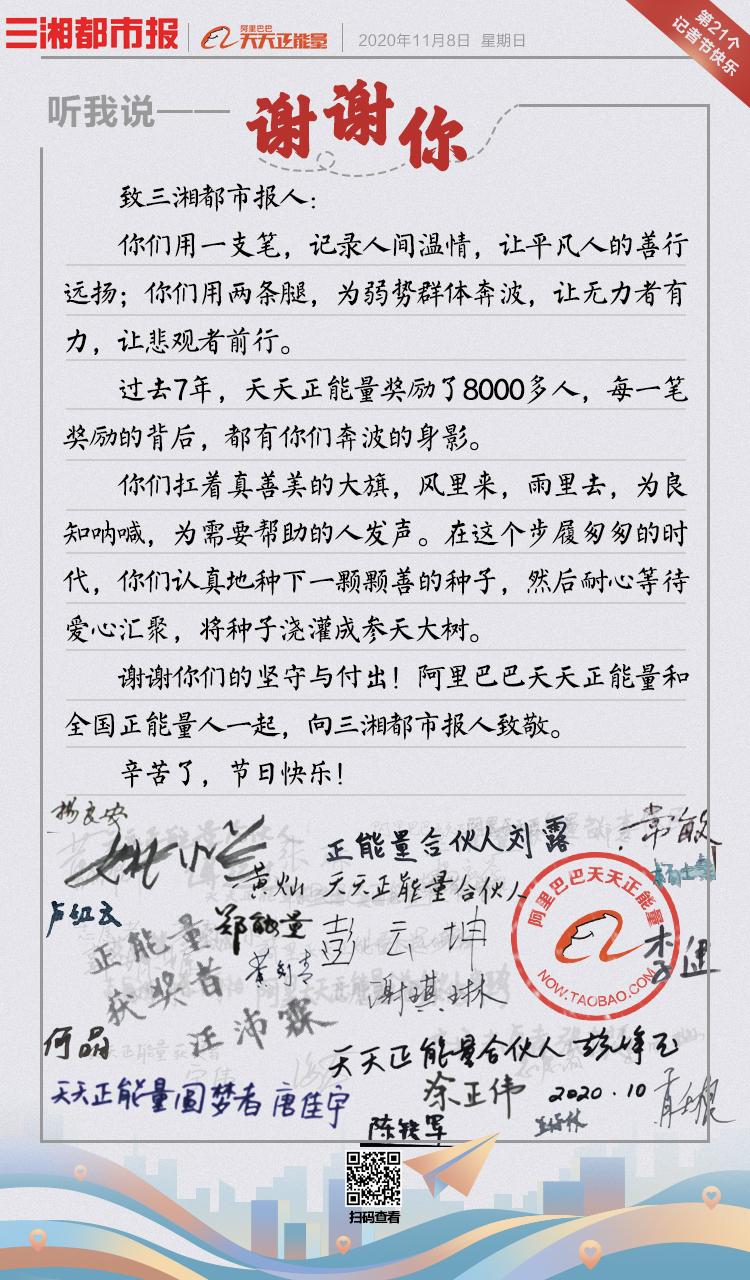 三湘都市报
阿里巴巴
天天正能量
2020年11月8日 星期日
第21个
记者节快乐
听我说——
谢谢你
致三湘都市报人：
你们用一支笔，记录人间温情，让平凡人的善行
远扬；你们用两条腿，为弱势群体奔波，让无力者有
力，让悲观者前行。
过去7年，天天正能量奖励了8000多人，每一笔
奖励的背后，都有你们奔波的身影。
你们扛着真善美的大旗，风里来，雨里去，为良
知呐喊，为需要帮助的人发声。在这个步履匆匆的时
代，你们认真地种下一颗颗善的种子，然后耐心等待
爱心汇聚，将种子浇灌成参天大树。
谢谢你们的坚守与付出！阿里巴巴天天正能量和
全国正能量人一起，向三湘都市报人致敬。
辛苦了，节日快乐！
杨良安
正能量合伙人刘露
常敏
黄灿
天天正能量合伙人
卢红云
郑能量
彭云坤
阿里巴巴天天正能量
NOW.TAOBAO.COM
李进
正能量
获奖者
汪沛霖
谢琪琳
何晶
天天正能量合伙人
余正伟
2020.10
天天正能量圆梦者 唐佳宇
陈铁军
扫码查看